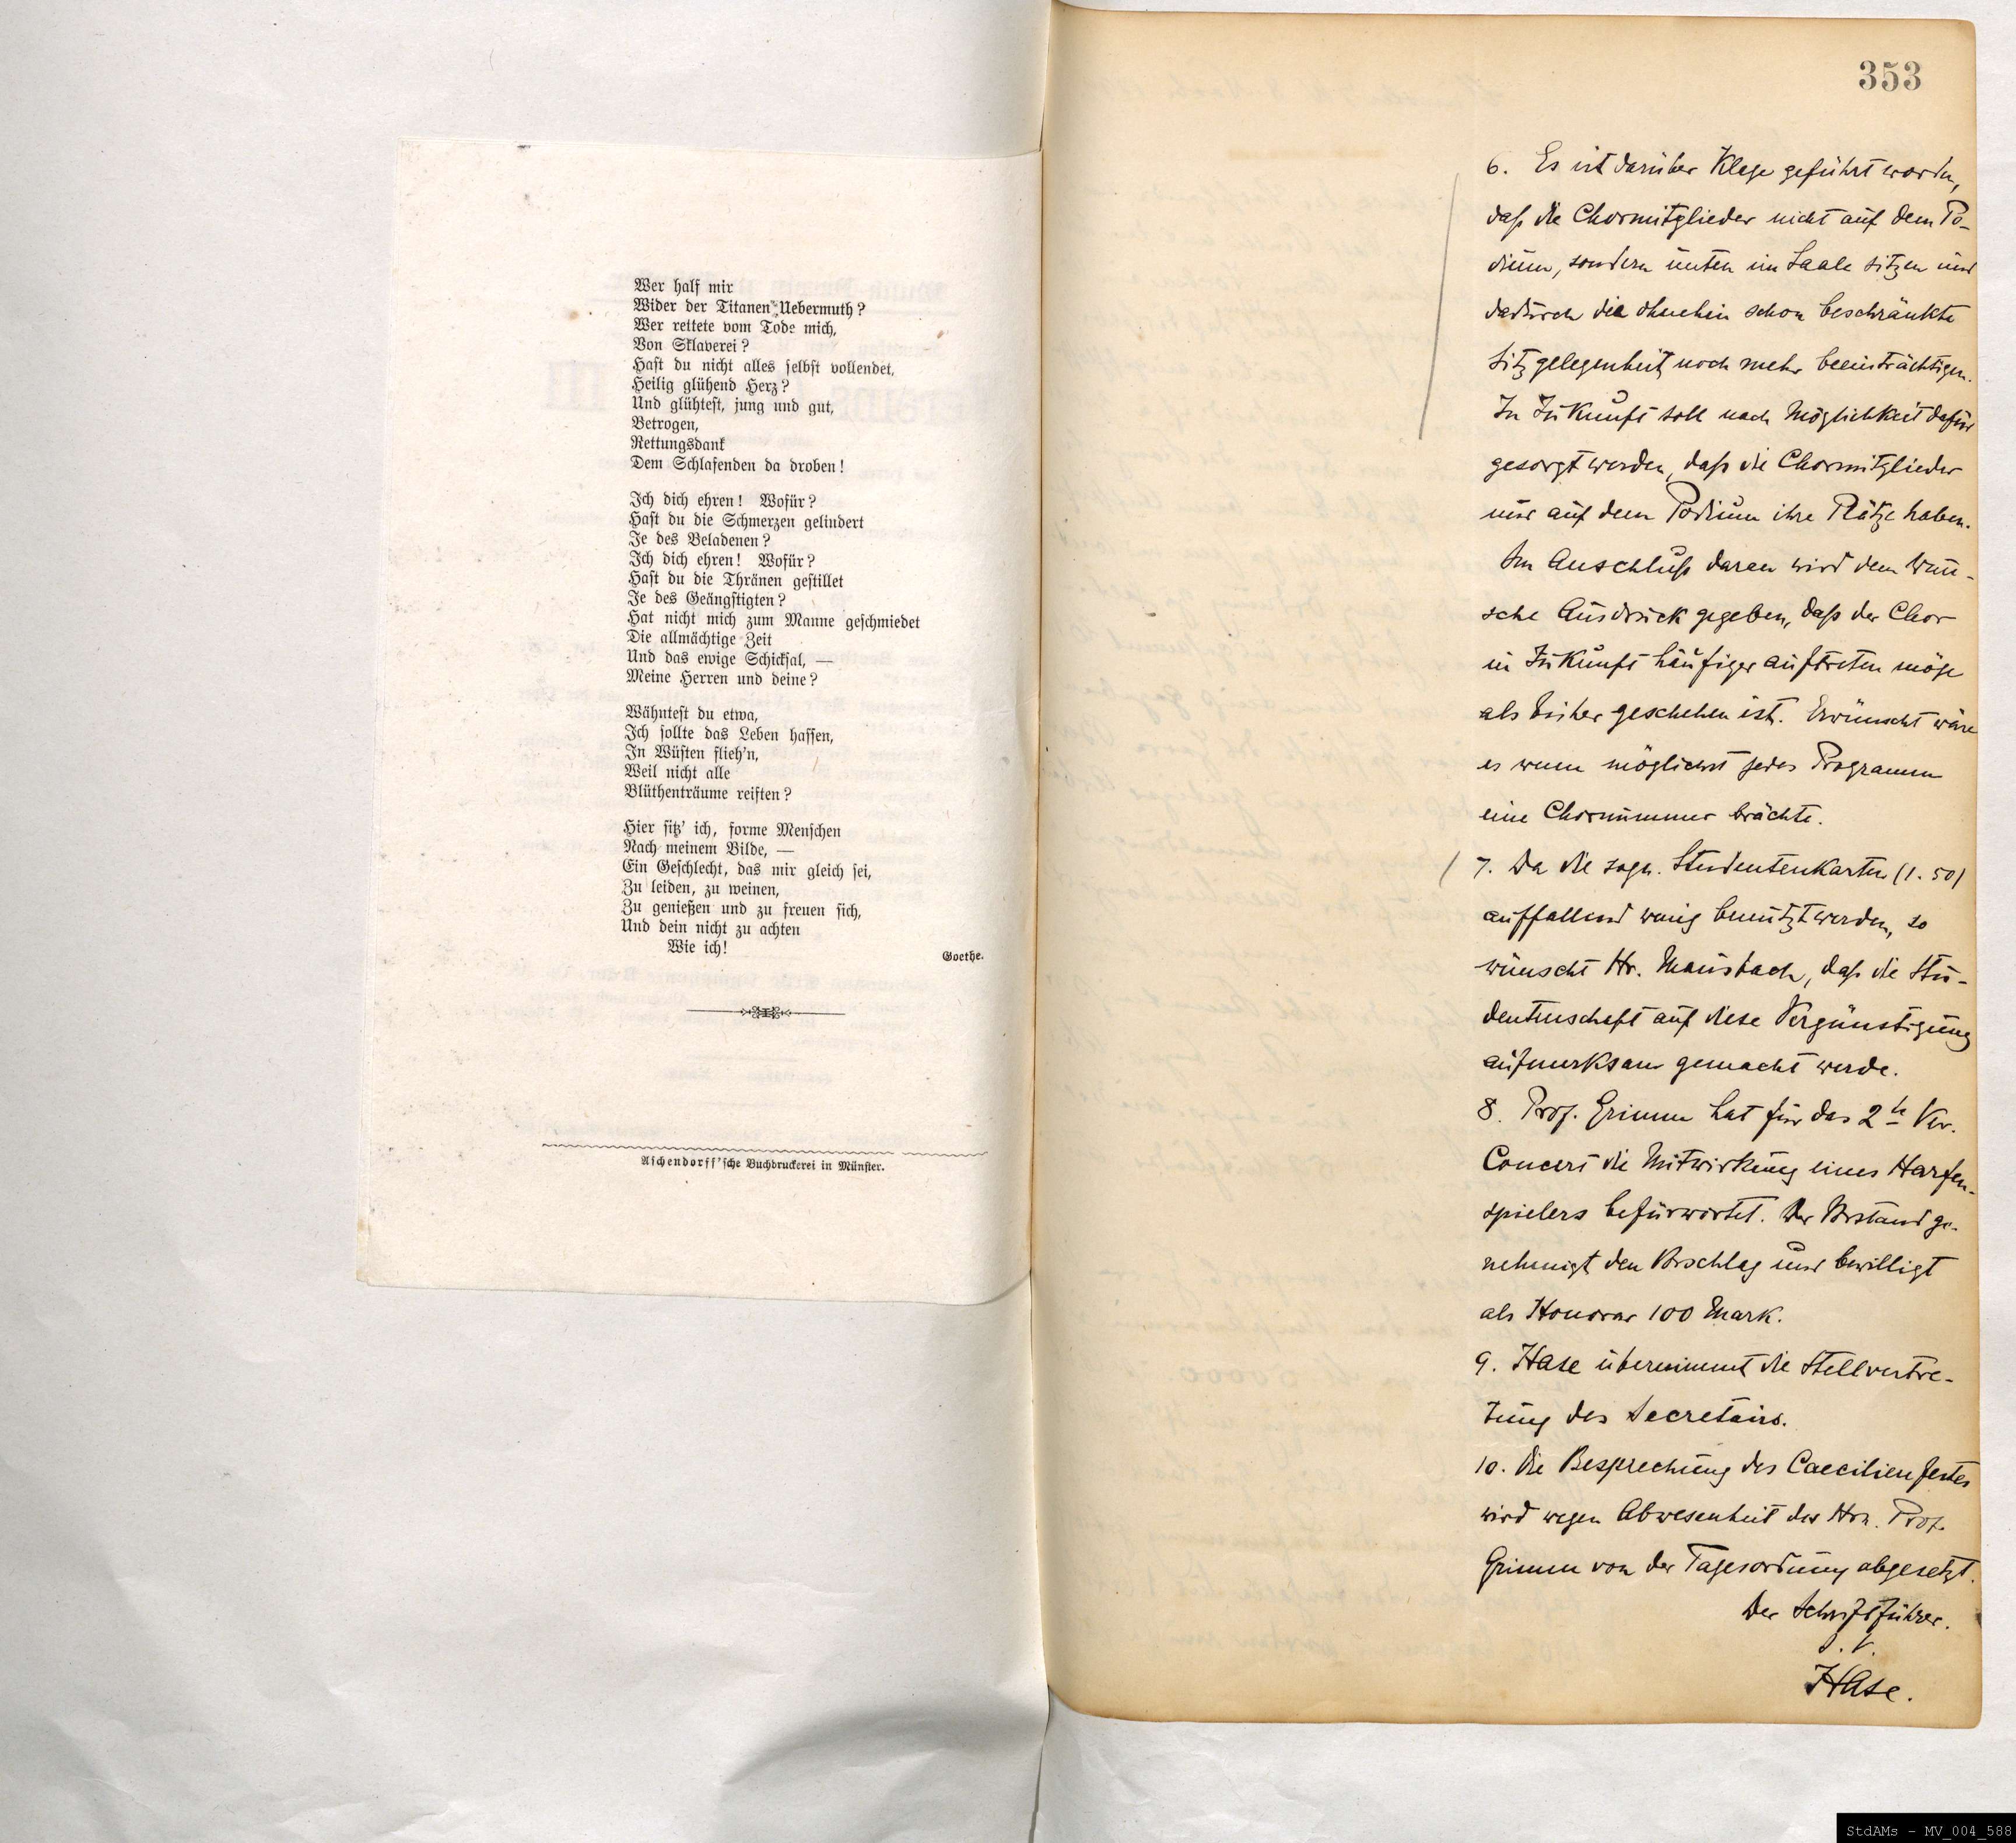 Wer half mir
Wider der Titanen Uebermuth?
Wer rettete vom Tode mich,
Von Sklaverei?
Hast du nicht alles selbst vollendet,
Heilig glühend Herz?
Und glühtest, jung und gut,
Betrogen,
Rettungsdank
Dem Schlafenden da droben!
Ich dich ehren! Wofür?
Hast du die Schmerzen gelindert
Je des Beladenen?
Ich dich ehren! Wofür?
Hast du die Thränen gestillet
Je des Geängstigten?
Hat nicht mich zum Manne geschmiedet
Die allmächtige Zeit
Und das ewige Schicksal, —
Meine Herren und deine?
Wähntest du etwa,
Ich sollte das Leben hassen,
In Wüsten flieh'n,
Weil nicht alle
Blüthenträume reiften?
Hier sitz' ich, forme Menschen
Nach meinem Bilde, —
Ein Geschlecht, das mir gleich sei,
Zu leiden, zu weinen,
Zu genießen und zu freuen sich,
Und dein nicht zu achten
Wie ich!
Goethe.
Aschendorff'sche Buchdruckerei in Münster.
353
6. Es ist darüber Klage geführt worden,
daß die Chormitglieder nicht auf dem Po-
dium, sondern unten im Saale sitzen und
dadurch die ohnehin schon beschränkte
Sitzgelegenheit noch mehr beeinträchtigen.
In Zukunft soll nach Möglichkeit dafür
gesorgt werden, daß die Chormitglieder
nur auf dem Podium ihre Plätze haben.
Im Anschluß daran wird dem Wun-
sche Ausdruck gegeben, daß der Chor
in Zukunft häufiger auftreten möge
als bisher geschehen ist. Erwünscht wäre
es wenn möglichst jedes Programm
eine Chornummer brächte.
7. Da die sogn. Studentenkarten (1.50)
auffallend wenig benutzt werden, so
wünscht Hr. Mausbach, daß die Stu-
dentenschaft auf diese Vergünstigung
aufmerksam gemacht werde.
8. Prof. Grimm hat für das 2te Ver.
Concert die Mitwirkung eines Harfen-
spielers befürwortet. Der Vorstand ge-
nehmigt den Vorschlag und bewilligt
als Honorar 100 Mark.
9. Hase übernimmt die Stellvertre-
tung des Secretairs.
10. Die Besprechung des Caecilienfestes
wird wegen Abwesenheit des Hrn. Prof.
Grimm von der Tagesordnung abgesetzt.
Der Schriftführer.
J. V.
Hase.
StdAMs - MV_004_588